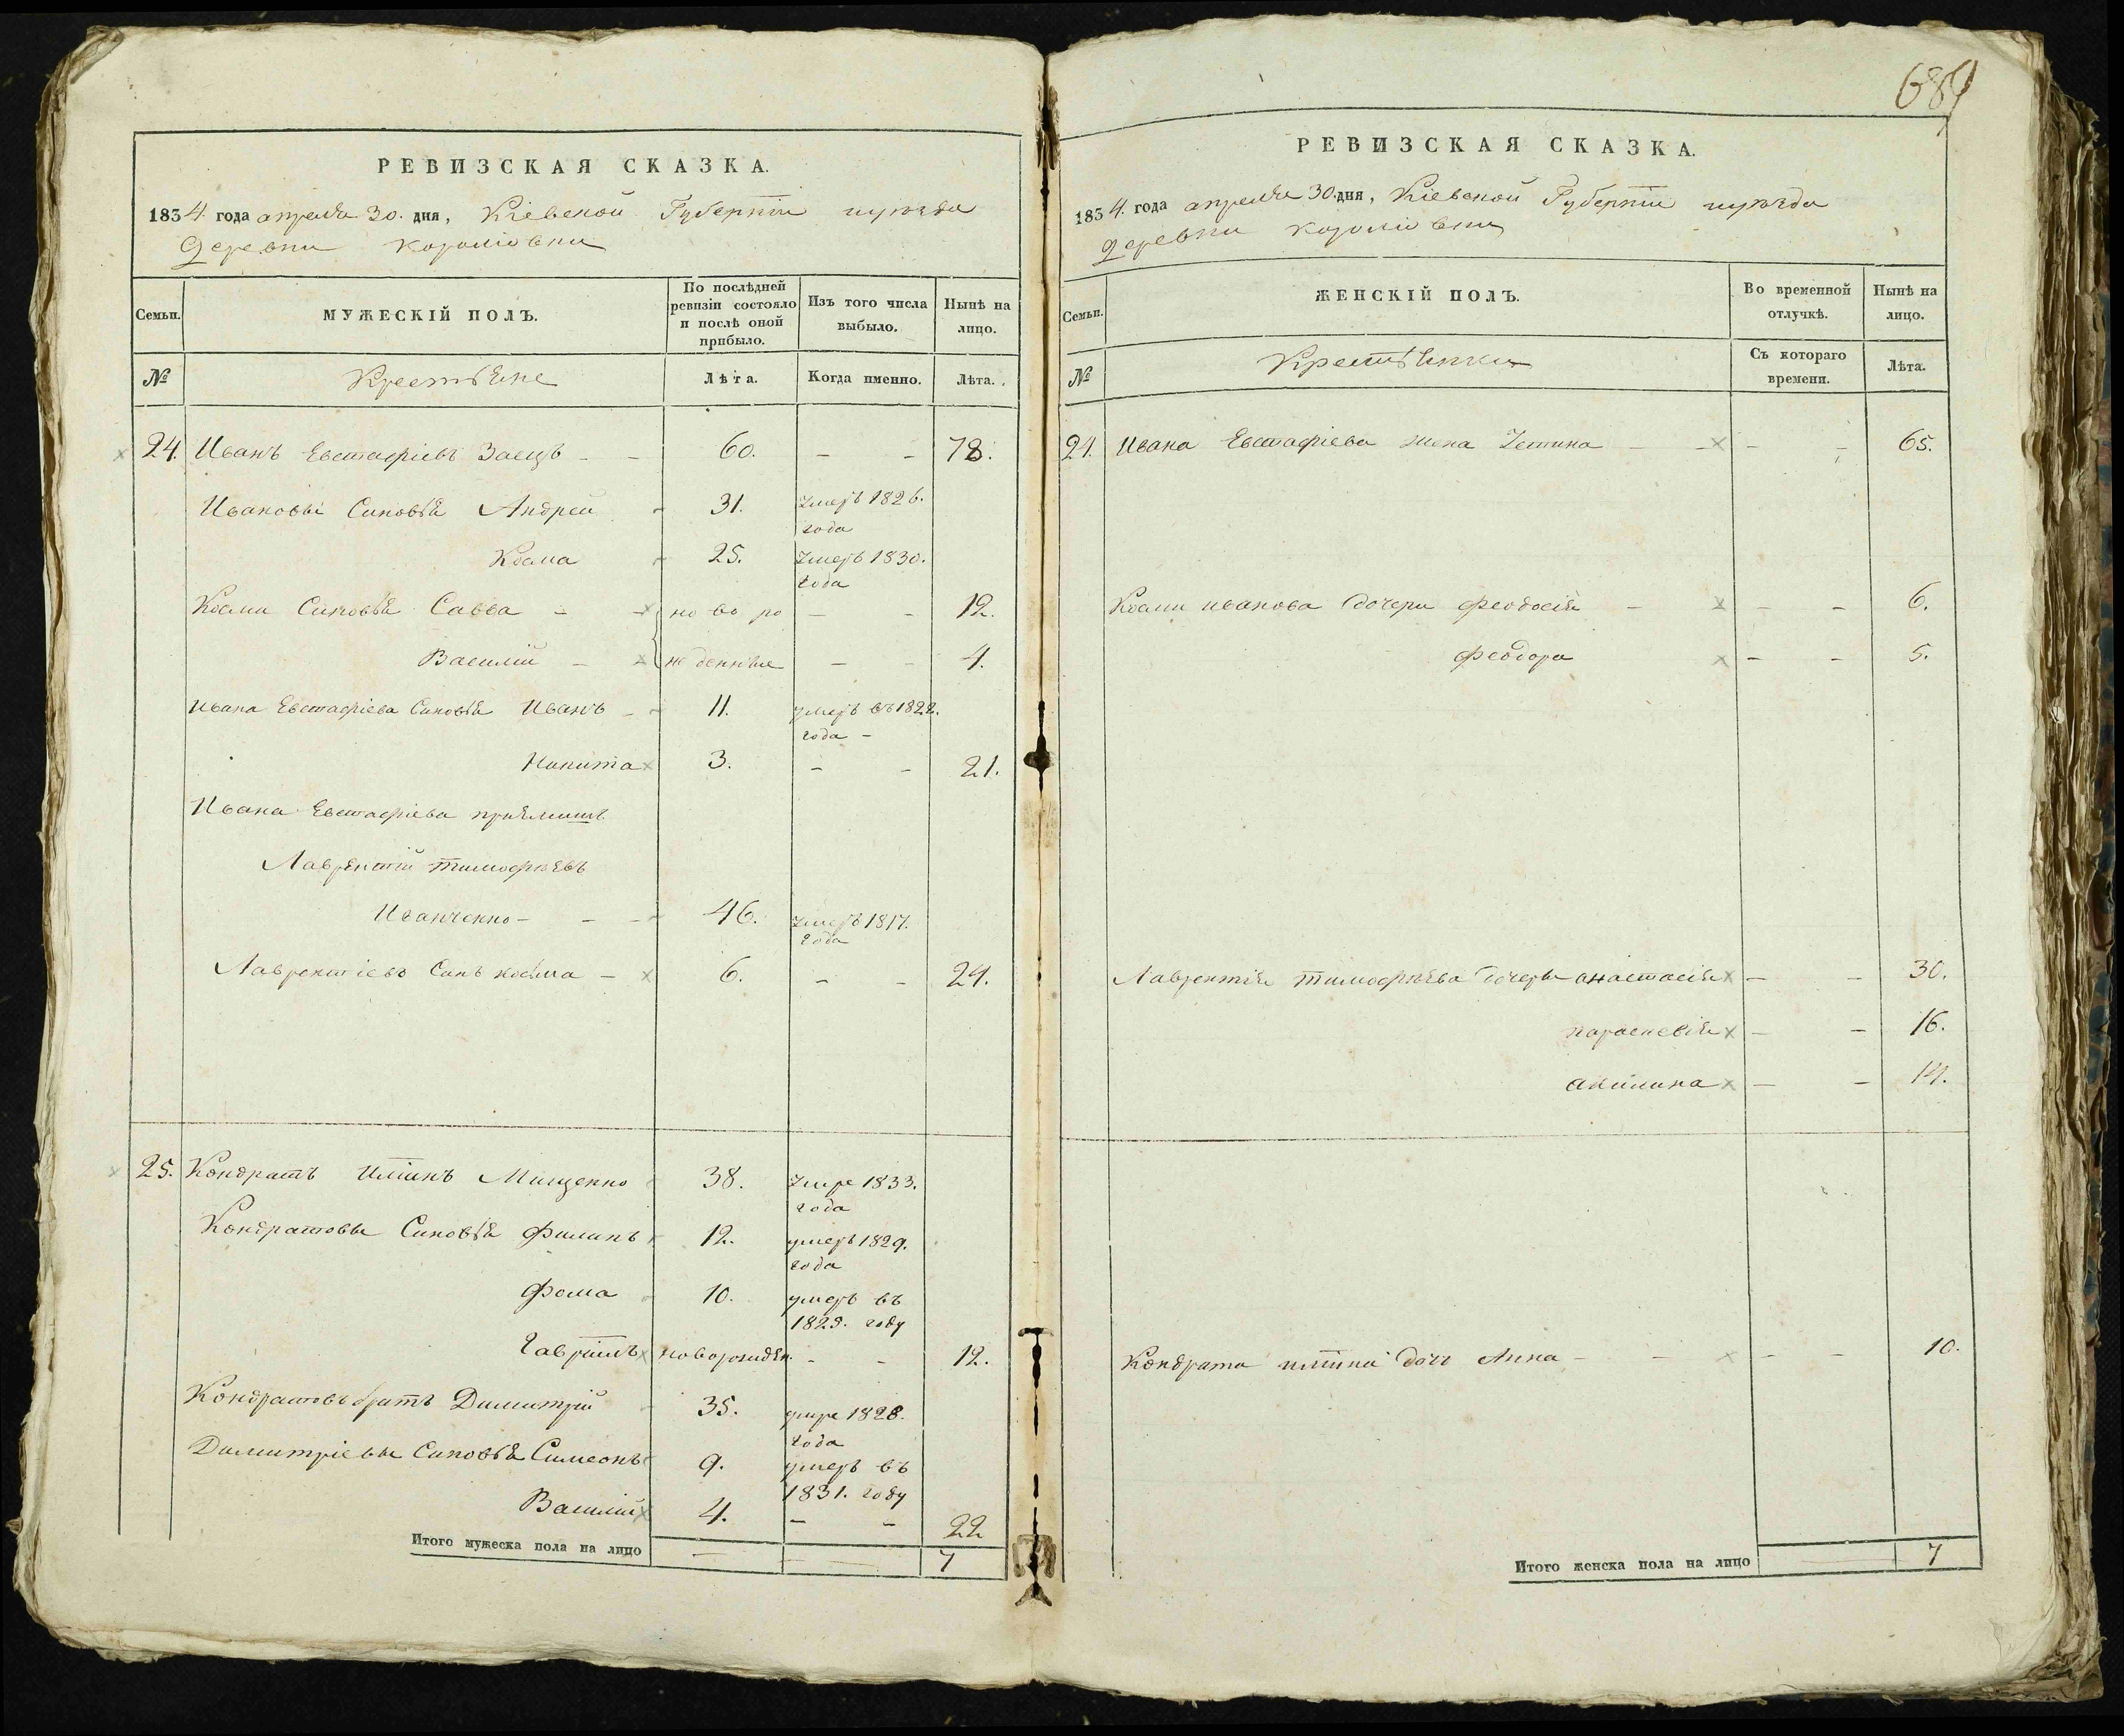 689
РЕВИЗСКАЯ СКАЗКА.
1834. года апреля 30. дня, Кіевской Губерніи и уѣзда
деревни королювки
Семьи.
МУЖЕСКІЙ ПОЛЪ.
По послѣдней ревизіи состояло и послѣ оной прибыло.
Изъ того числа выбыло.
Нынѣ на лицо.
№
Крестьяне
Лѣта.
Когда именно.
Лѣта.
24. Иванъ Евстафіевъ Заецъ - - 60. - - 78.
Ивановы Синовья Андрей - 31. Умеръ 1826. года
Козма - 25. Умеръ 1830. года
Козми Синовья Савва - - но во ро - - 12.
Василій - неденніые - - 4.
Ивана Евстафіева Синовья Иванъ - - 11. умеръ въ 1822. года -
Никита 3. - - 21.
Ивана Евстафіева приемишъ
Лаврентій тимофѣевъ
Иванченко - - - 46. Умеръ 1817. года
Лаврентіевъ Синъ косьма - 6. - - 24.
25. Кондратъ Иліинъ Мищенко 38. Умре 1833. года
Кондратовы Синовья Филипъ 12. умеръ 1829. года
Фома 10. умеръ въ 1825. году
Гавріилъ новорожден. - - 12.
Кондратовъ братъ Димитрій 35. умре 1828. года
Димитріевы Синовья Симеонъ 9. умеръ въ 1831. году
Василій 4. - - 22
Итого мужеска пола на лицо — — 7
РЕВИЗСКАЯ СКАЗКА.
1834. года апреля 30. дня, Кіевской Губерніи и уѣзда
деревни королювки
Семьи.
ЖЕНСКІЙ ПОЛЪ.
Во временной отлучкѣ.
Нынѣ на лицо.
№
Крестьянки
Съ котораго времени.
Лѣта.
24. Ивана Евстафіева жена Устина - - - - 65.
Козми иванова дочери феодосія - - - 6.
феодора - - 5.
Лаврентія тимофѣева дочери анастасія - - 30.
параскевія - - 16.
акилина - - 14.
Кондрата иліина дочь Анна - - - - 10.
Итого женска пола на лицо — 7